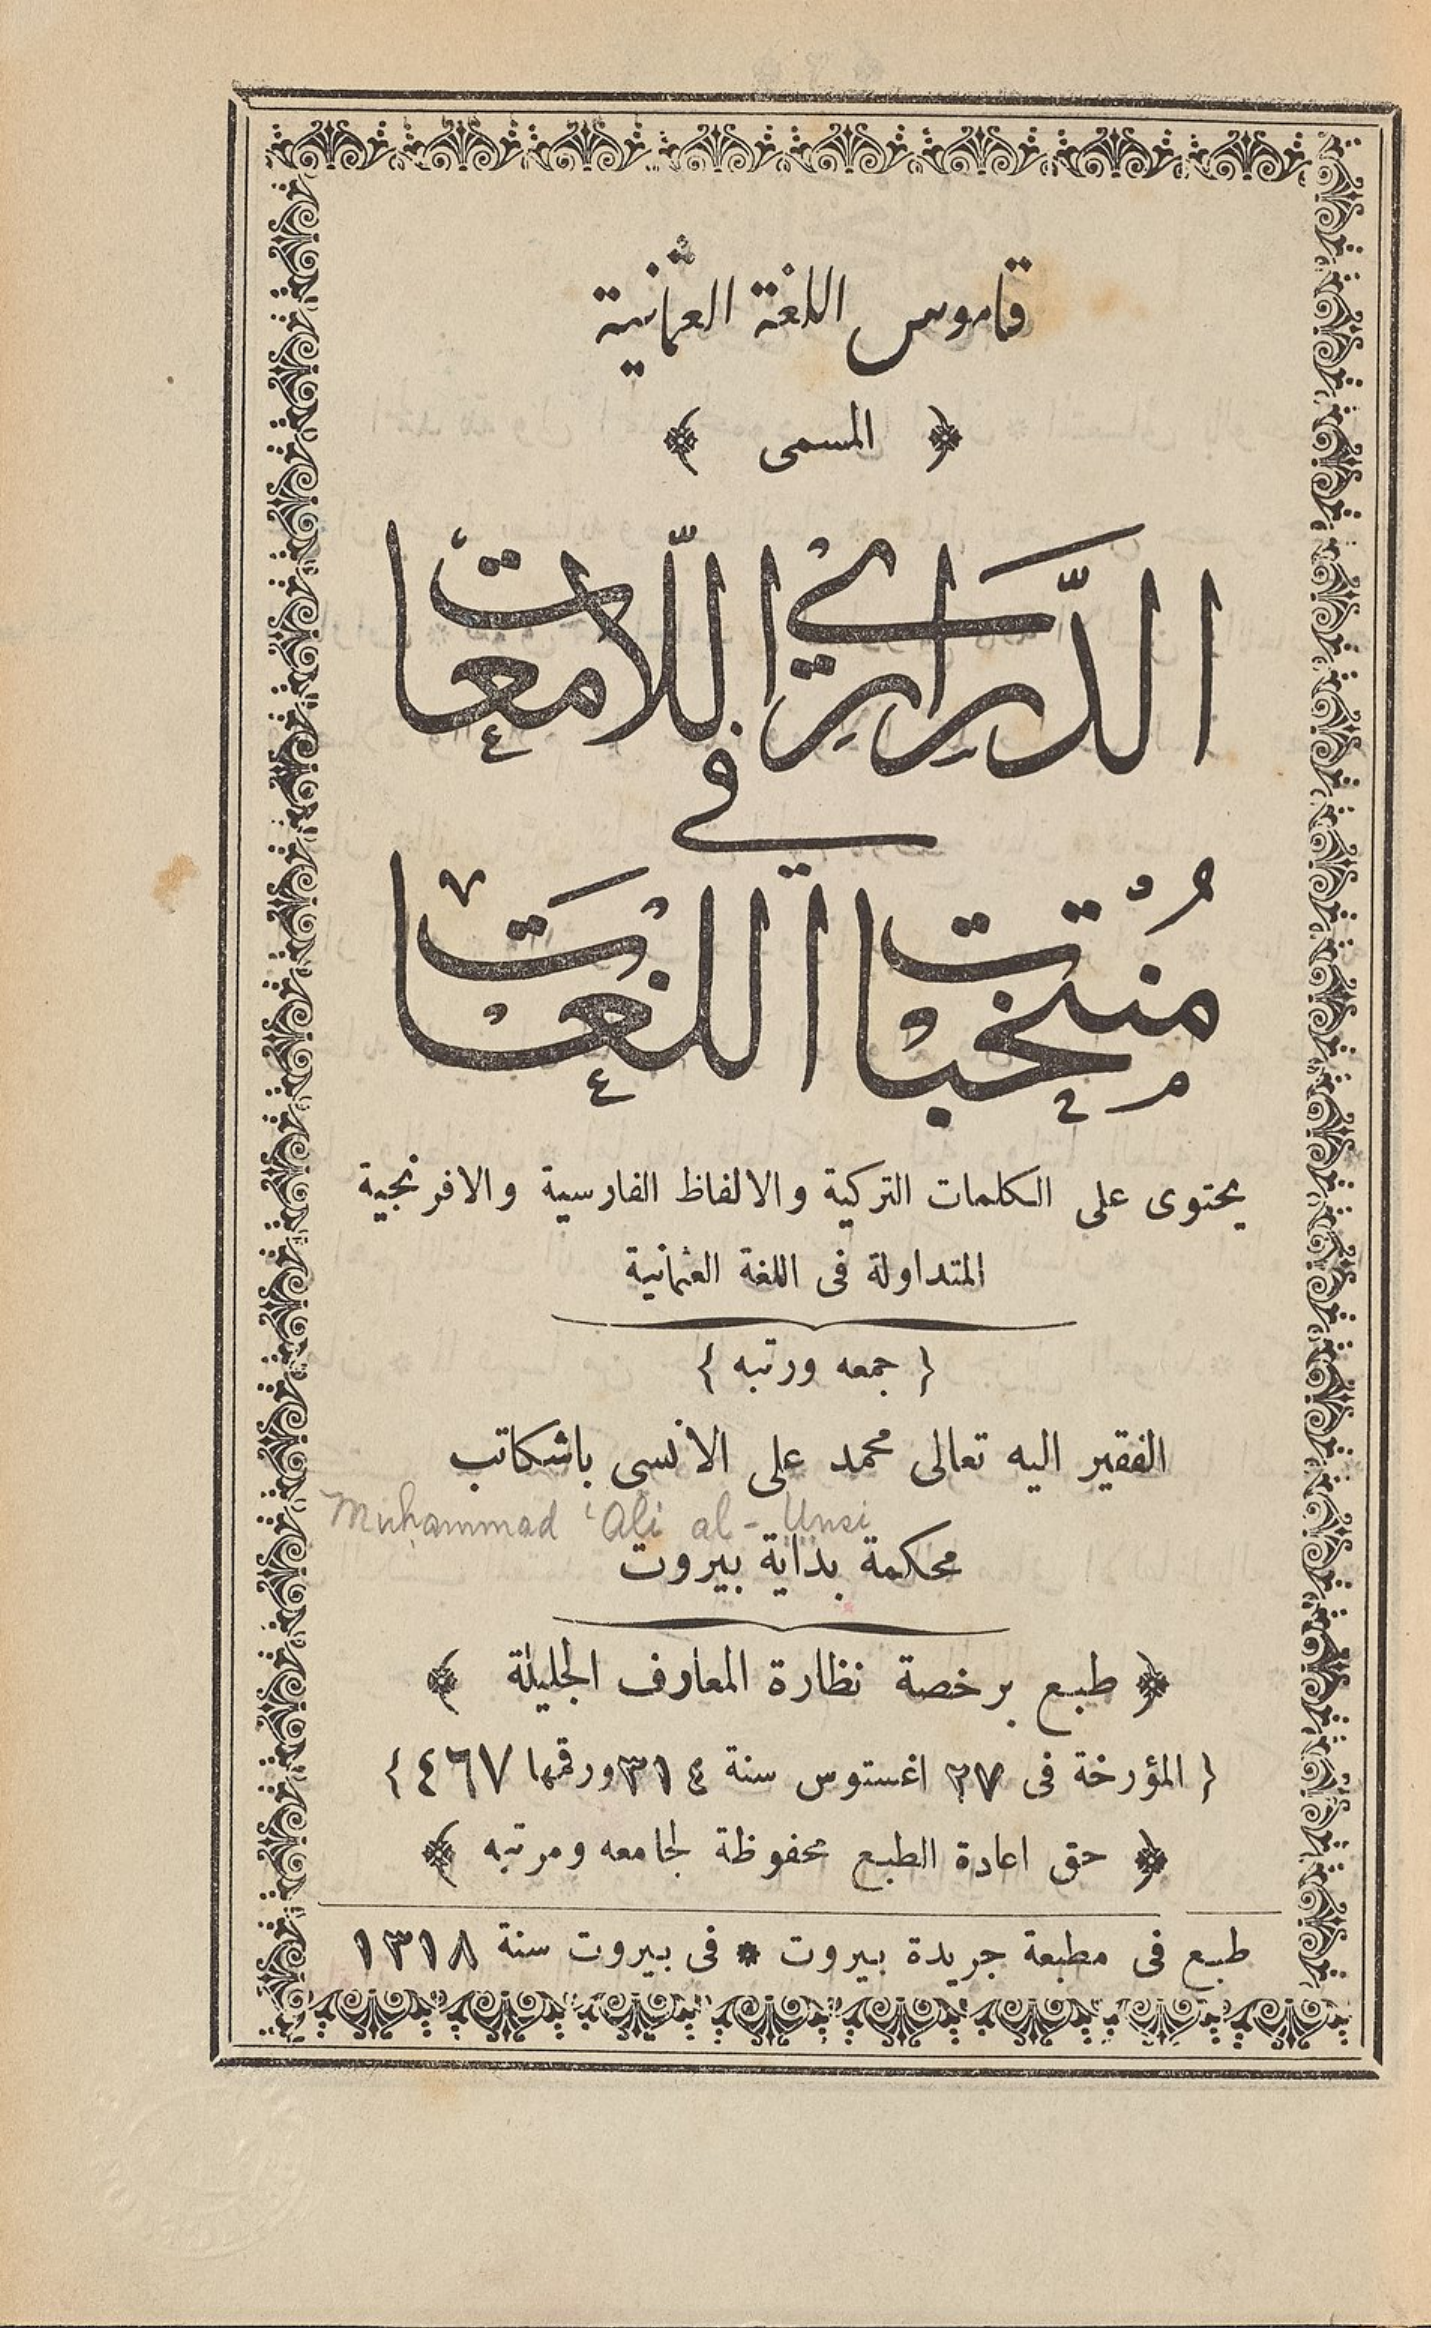 قاموس اللغة العثمانية
﴿ المسمى ﴾
الدَّرَارِي اللَّامِعَات
في
مُنْتَخَبَات اللُّغَات
يحتوى على الكلمات التركية والالفاظ الفارسية والافرنجية
المتداولة فى اللغة العثمانية
{ جمعه ورتبه }
الفقير اليه تعالى محمد على الأنسى باشكاتب
Muḥammad ʿAli al-Unsi
محكمة بداية بيروت
﴿ طبع برخصة نظارة المعارف الجليلة ﴾
{ المؤرخة فى ٢٧ اغستوس سنة ٣١٤ ورقمها ٤٦٧ }
﴿ حق اعادة الطبع محفوظة لجامعه ومرتبه ﴾
طبع فى مطبعة جريدة بيروت * فى بيروت سنة ١٣١٨